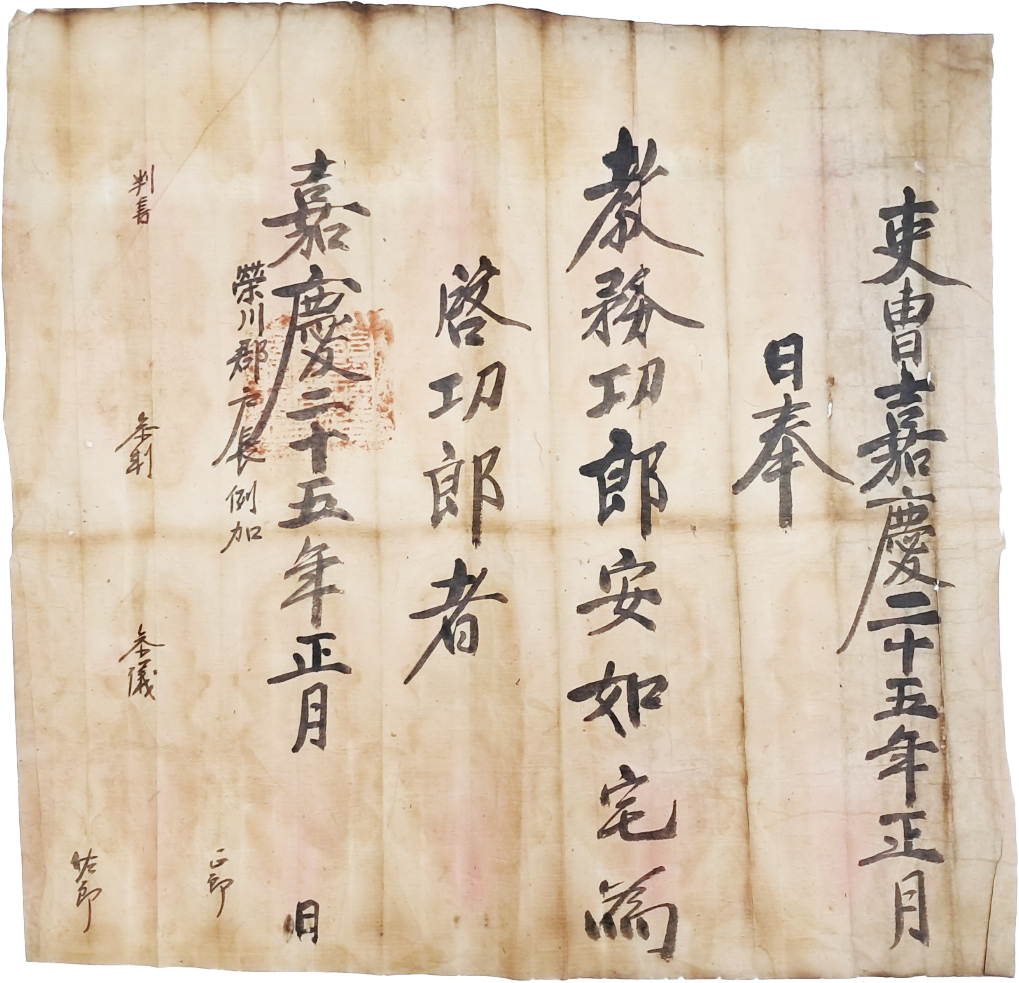 吏曹嘉慶二十五年正月
日奉
教務功郎安如宅為
啓功郎者
嘉慶二十五年正月 日
榮川郡戶長例加
判書
參判
參議
正郎
佐郎